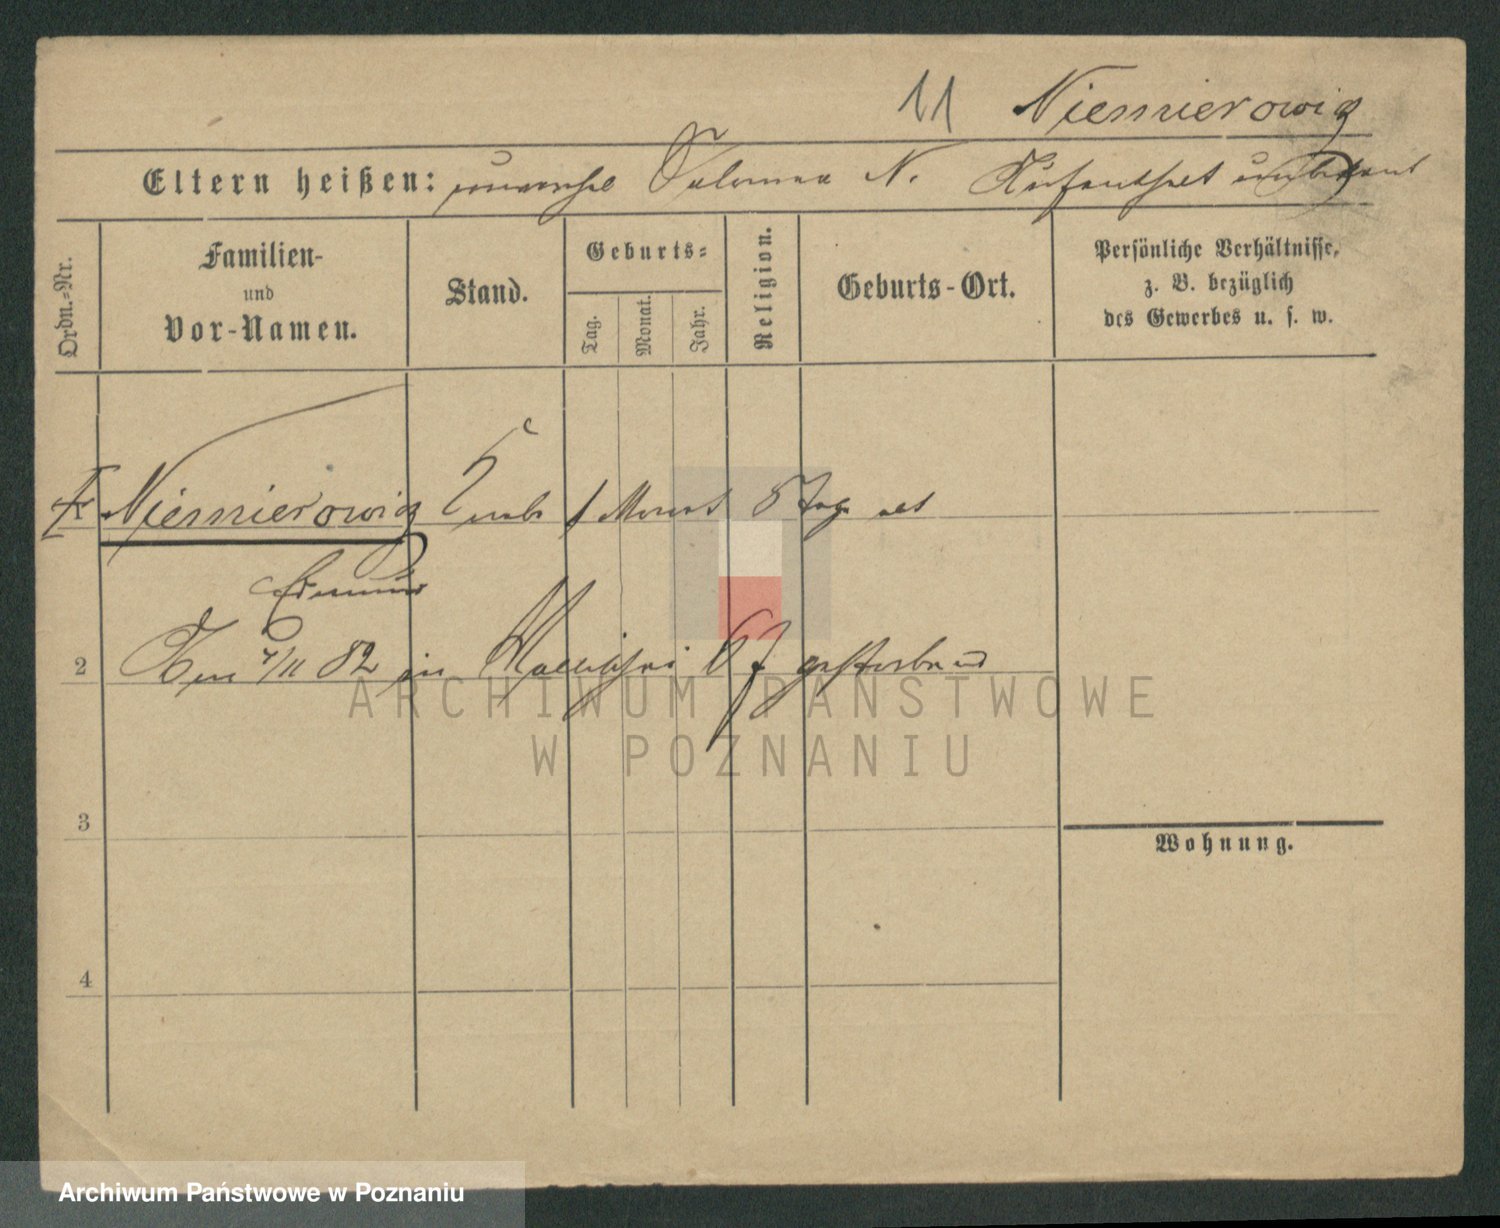 11 Niemierowicz
Eltern heißen: unverehel Salomea N. Aufenthalt unbekannt
Ordn.-Nr.
Familien- und Vor-Namen.
Stand.
Geburts-
Tag.
Monat.
Jahr.
Religion.
Geburts-Ort.
Persönliche Verhältnisse,
z. B. bezüglich
des Gewerbes u. s. w.
Niemierowicz 1 Monat 8 Tage alt
Edmund
2 /11 82 in gestorben
3
Wohnung.
4
ARCHIWUM PAŃSTWOWE
W POZNANIU
Archiwum Państwowe w Poznaniu